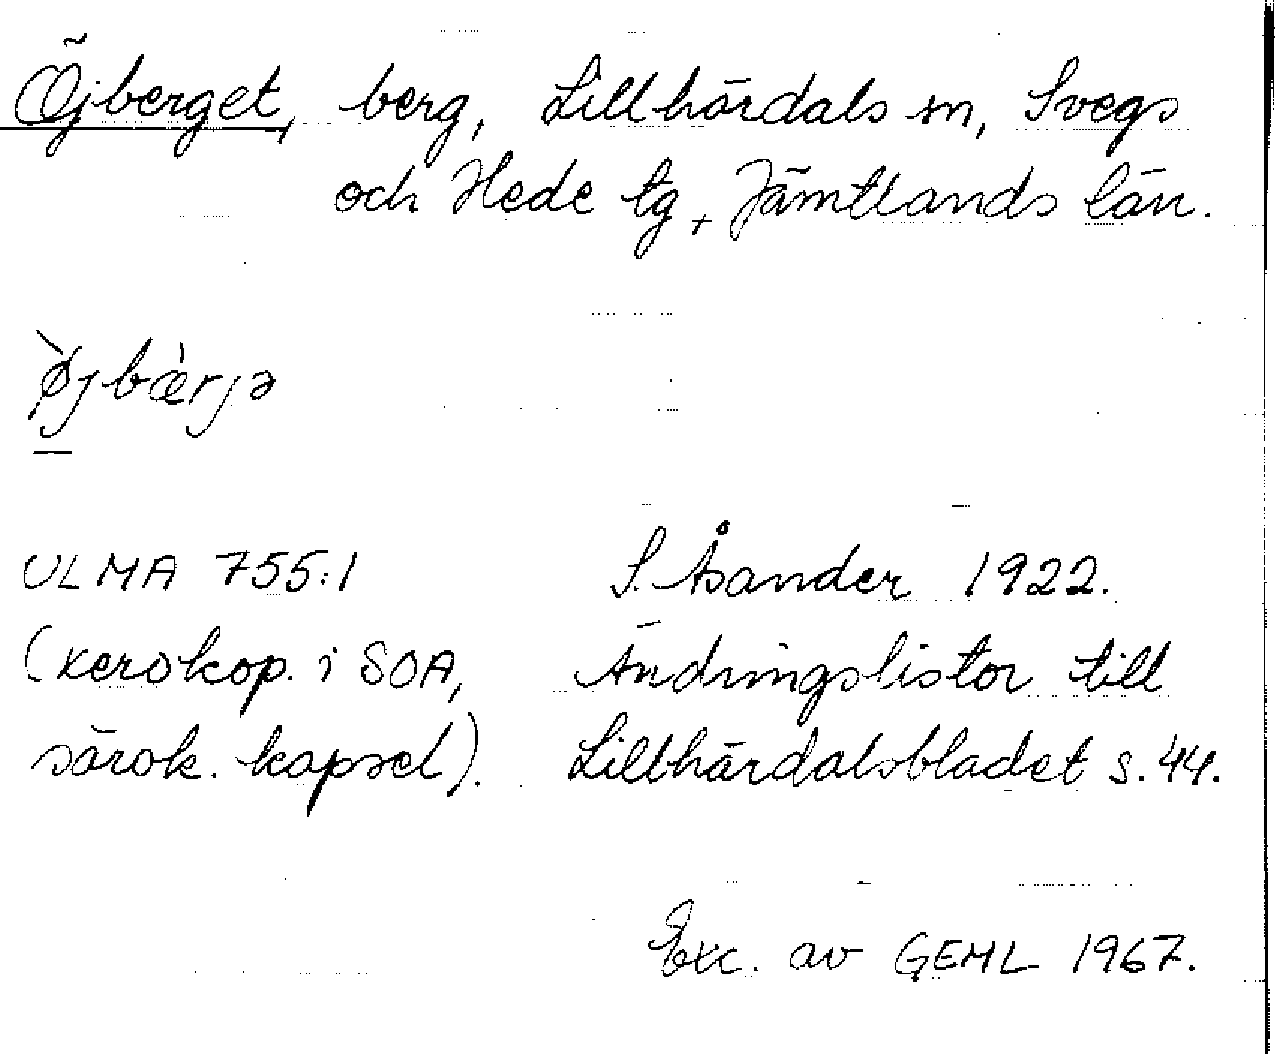 Öjberget, berg, Lillhärdals sn, Svegs
och Hede tg, Jämtlands län.
ø̀jbæ̀rjə
ULMA 755:1 S. Åsander 1922.
(xerokop. i SOA, Ändringslistor till
särsk. kapsel). Lillhärdalsbladet s. 44.
Exc. av GEML 1967.